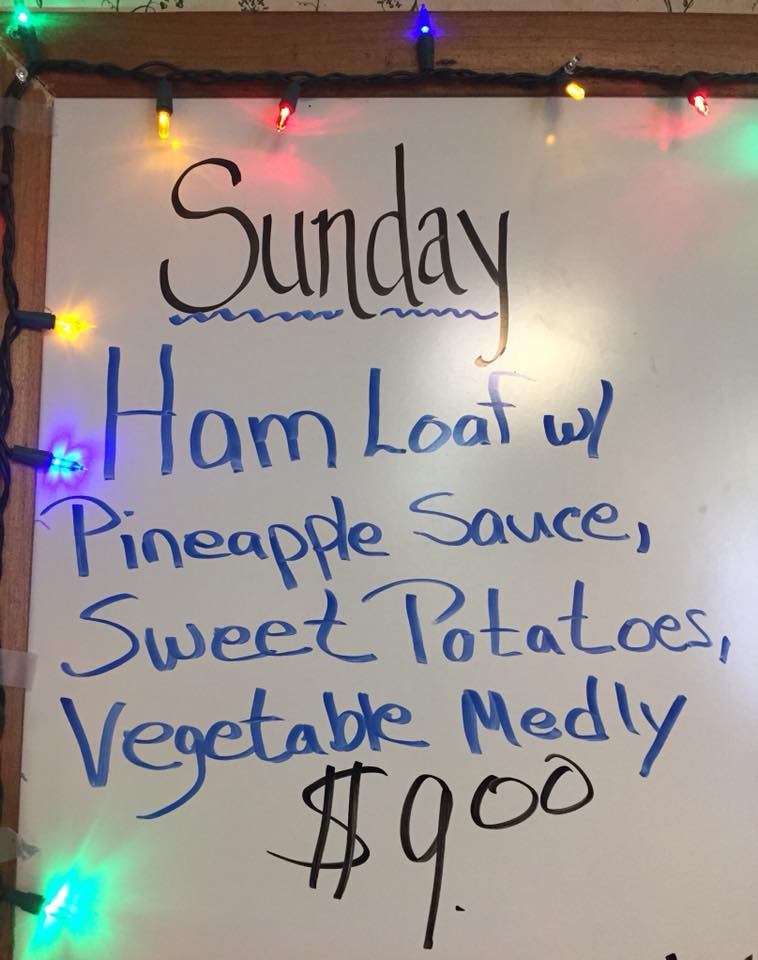 Sunday
Ham Loaf w/
Pineapple Sauce,
Sweet Potatoes,
Vegetable Medly
$9.00